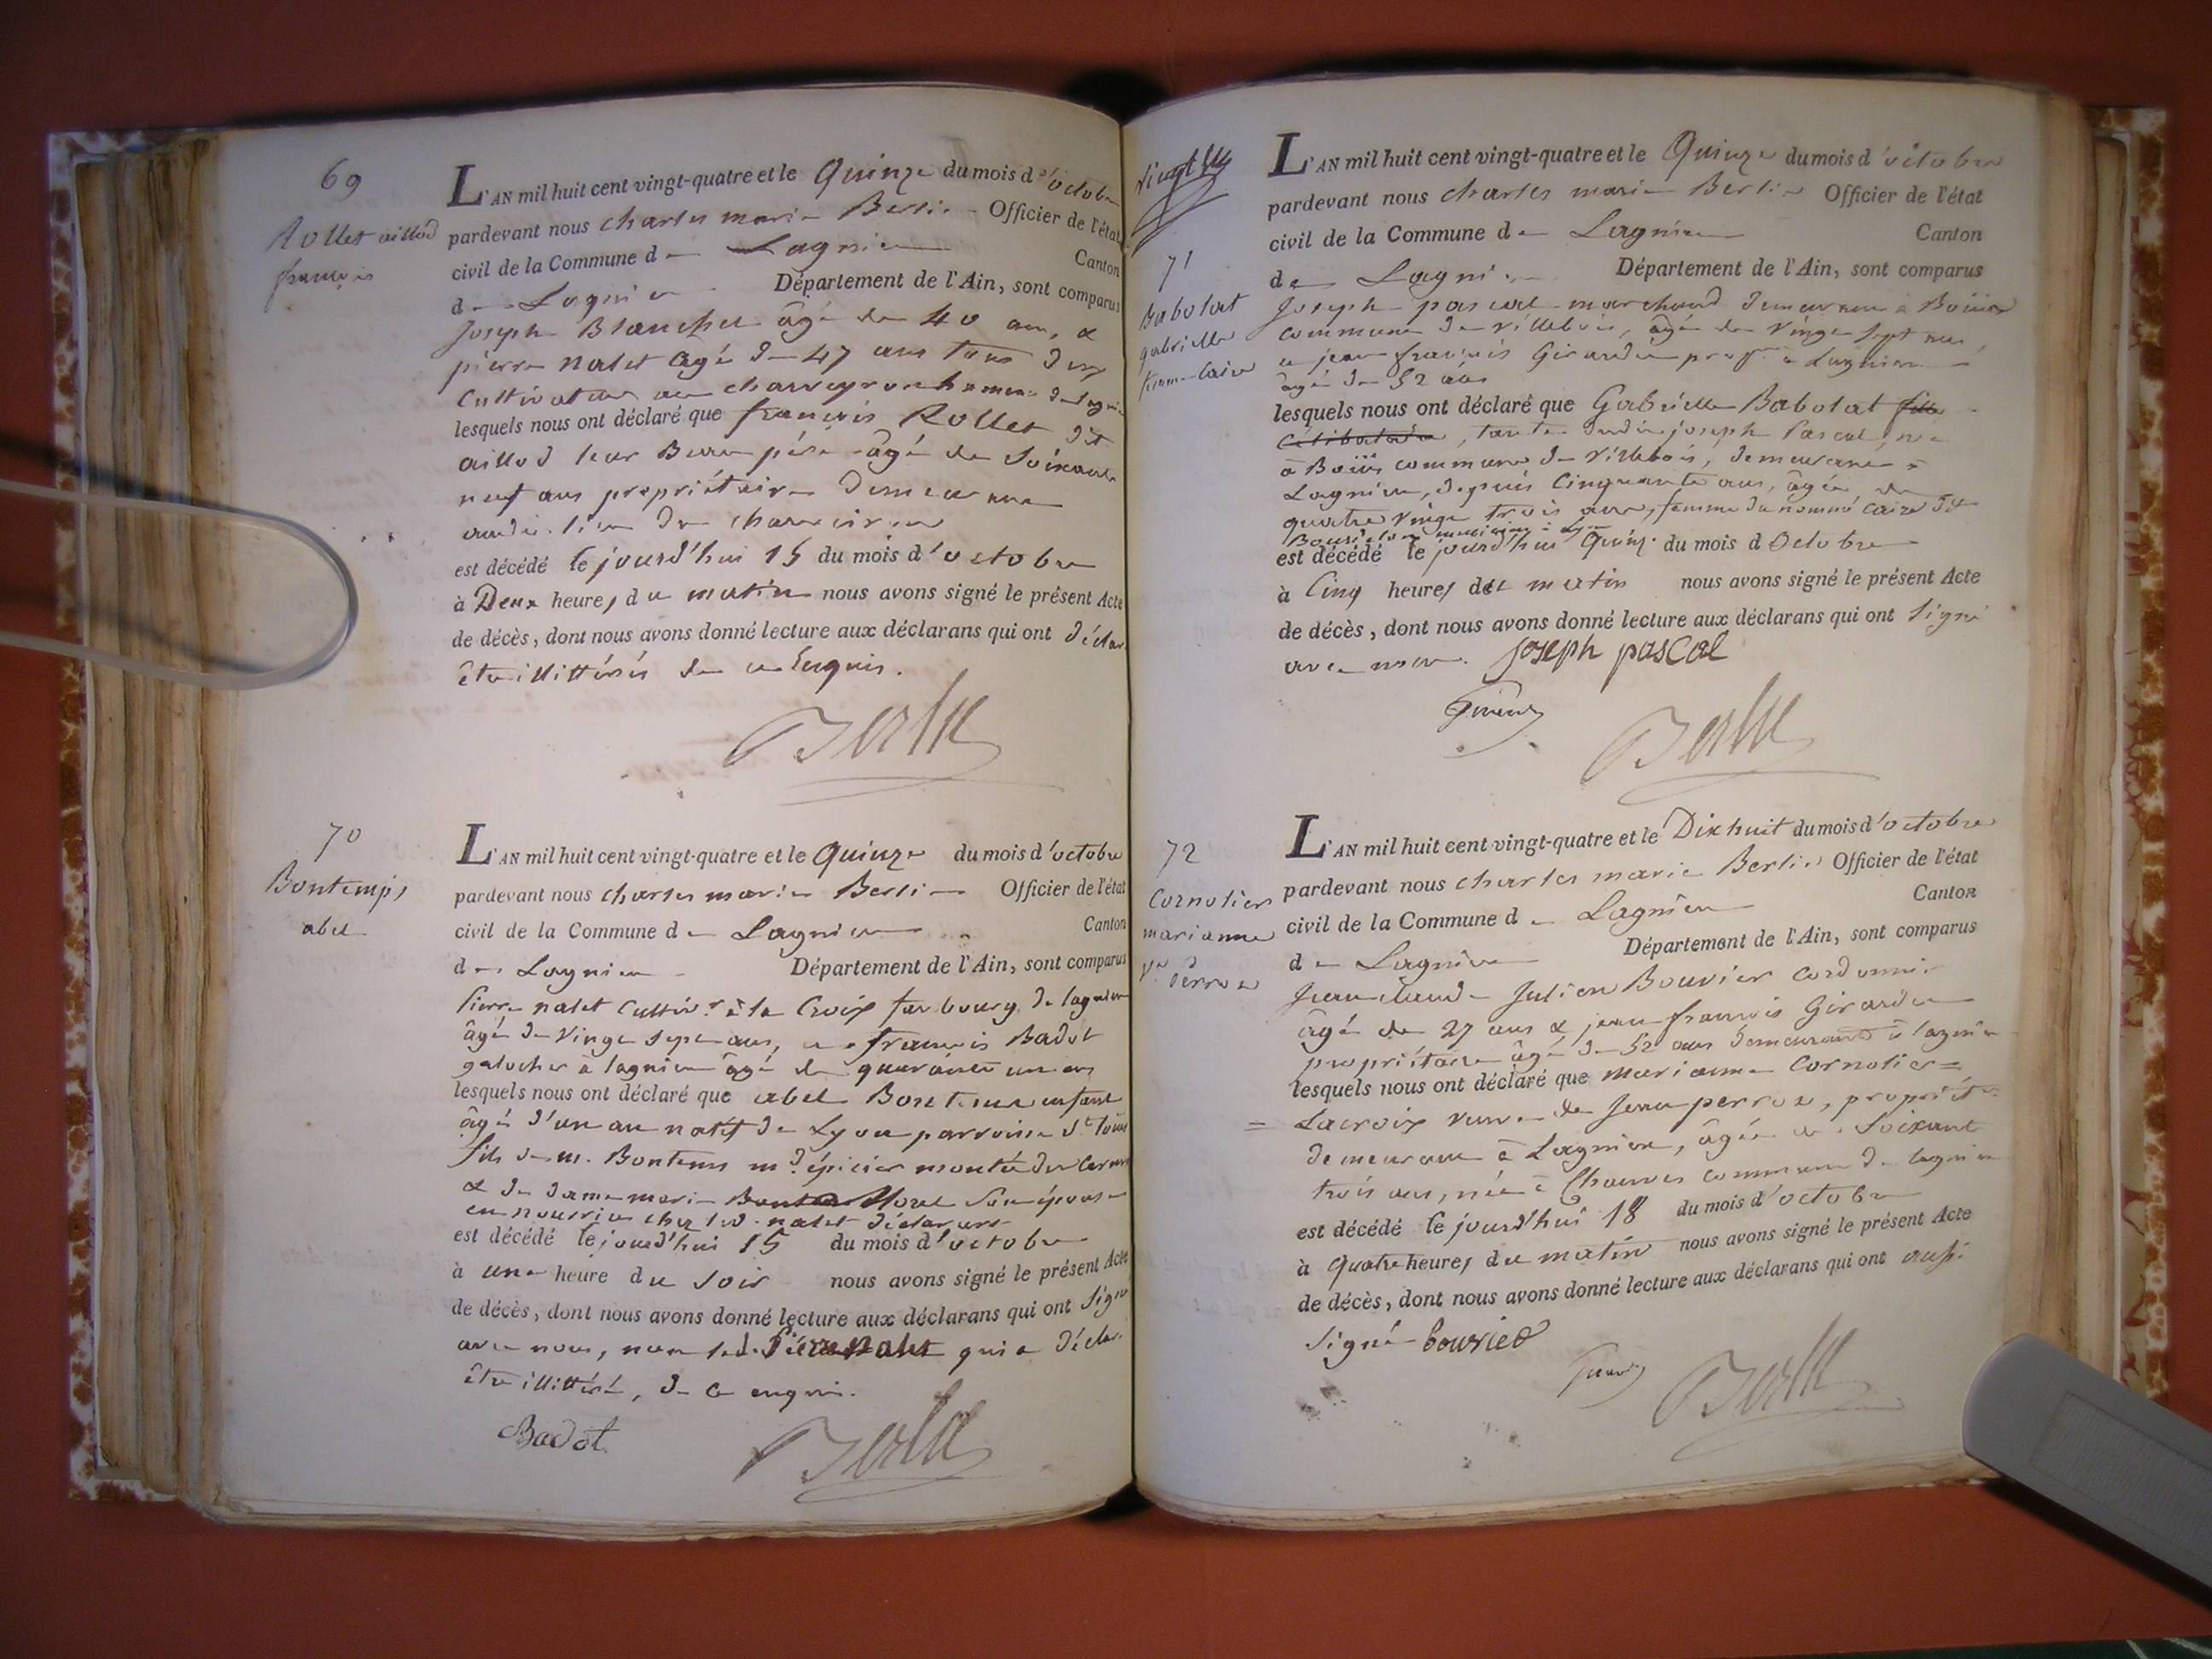 69
Rollet aillod
françois
L'AN mil huit cent vingt-quatre et le Quinze du mois d'octobre
pardevant nous charles marie Berlie Officier de l'état
civil de la Commune de Lagnieu Canton
de Lagnieu Département de l'Ain, sont comparus
Joseph Blanchet âgé de 40 ans, &
pierre nalet âgé de 47 ans tous deux
Cultivateurs au hameau de
lesquels nous ont déclaré que françois Rollet dit
aillod leur Beau père âgé de Soixante
neuf ans propriétaire demeurant
audit lieu de
est décédé le jourd'hui 15 du mois d'octobre
à Deux heures du matin nous avons signé le présent Acte
de décès, dont nous avons donné lecture aux déclarans qui ont déclaré
être illittérés de ce Enquis.
Berlie
70
Bontemps
abel
L'AN mil huit cent vingt-quatre et le Quinze du mois d'octobre
pardevant nous charles marie Berlie Officier de l'état
civil de la Commune de Lagnieu Canton
de Lagnieu Département de l'Ain, sont comparus
Pierre nalet Cultivr à la Croix faubourg de lagnieu
âgé de Vingt Sept ans, et françois Badot
galocher à lagnieu âgé de quarante un ans
lesquels nous ont déclaré que abel Bontems enfant
âgé d'un an natif de Lyon parroisse St
fils de m. Bontems md épicier montée du
& de dame marie son épouse
en nourrice chez led. nalet déclarant
est décédé le jourd'hui 15 du mois d'octobre
à une heure du soir nous avons signé le présent Acte
de décès, dont nous avons donné lecture aux déclarans qui ont signé
avec nous, non led. Pierre nalet qui a déclaré
être illittéré, de ce enquis.
Badot
Berlie
71
Babolat
gabrielle
femme Caire
L'AN mil huit cent vingt-quatre et le Quinze du mois d'octobre
pardevant nous charles marie Berlie Officier de l'état
civil de la Commune de Lagnieu Canton
de Lagnieu Département de l'Ain, sont comparus
Joseph pascal marchand demeurant à
commune de villebois, âgé de vingt sept ans,
et jean françois Girardin propre à Lagnieu
âgé de 52 ans
lesquels nous ont déclaré que Gabrielle Babolat fille
Célibataire, tante dudit joseph Pascal, née
à commune de villebois, demeurant à
Lagnieu, depuis Cinquante ans, âgée de
quatre vingt trois ans, femme du nommé Caire dit
est décédé le jourd'hui Quinze du mois d Octobre
à Cinq heures du matin nous avons signé le présent Acte
de décès, dont nous avons donné lecture aux déclarans qui ont signé
avec nous. Joseph pascal
Berlie
72
Cornotier
marianne
ve Perroz
L'AN mil huit cent vingt-quatre et le Dixhuit du mois d'octobre
pardevant nous charles marie Berlie Officier de l'état
civil de la Commune de Lagnieu Canton
de Lagnieu Département de l'Ain, sont comparus
Jean claude Julien Bouvier cordonnier
âgé de 27 ans & jean françois Girardin
propriétaire âgé de 52 ans demeurants à lagnieu
lesquels nous ont déclaré que marianne Cornotier =
= Lacroix veuve de Jean perroz, propriétre
demeurant à Lagnieu, âgée de Soixante
trois ans, née à commune de lagnieu
est décédé le jourd'hui 18 du mois d'octobre
à Quatre heures du matin nous avons signé le présent Acte
de décès, dont nous avons donné lecture aux déclarans qui ont aussi
signé bouvier
Berlie